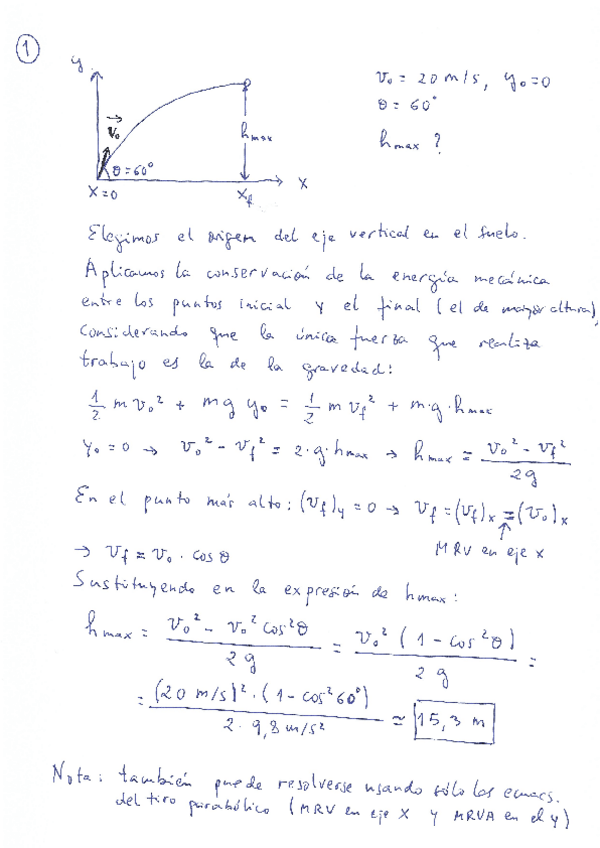 1
y
v₀ = 20 m/s, y₀=0
θ = 60°
h max ?
v₀
h max
θ=60°
X=0
x_f
X
Elegimos el origen del eje vertical en el suelo.
Aplicamos la conservación de la energía mecánica
entre los puntos inicial y el final (el de mayor altura),
considerando que la única fuerza que realiza
trabajo es la de la gravedad:
1/2 m v₀² + m g y₀ = 1/2 m v_f² + m·g·h max
y₀ = 0 → v₀² - v_f² = 2·g·h max → h max = (v₀² - v_f²) / 2g
En el punto más alto: (v_f)y = 0 → v_f = (v_f)x = (v₀)x
↑
MRV en eje x
→ v_f = v₀ · cos θ
Sustituyendo en la expresión de h max:
h max = (v₀² - v₀² cos²θ) / 2g = v₀² (1 - cos²θ) / 2g =
= (20 m/s)² · (1 - cos² 60°) / 2 · 9,8 m/s² ≃ 15,3 m
Nota: también puede resolverse usando sólo las ecuacs.
del tiro parabólico (MRV en eje X y MRVA en el y)